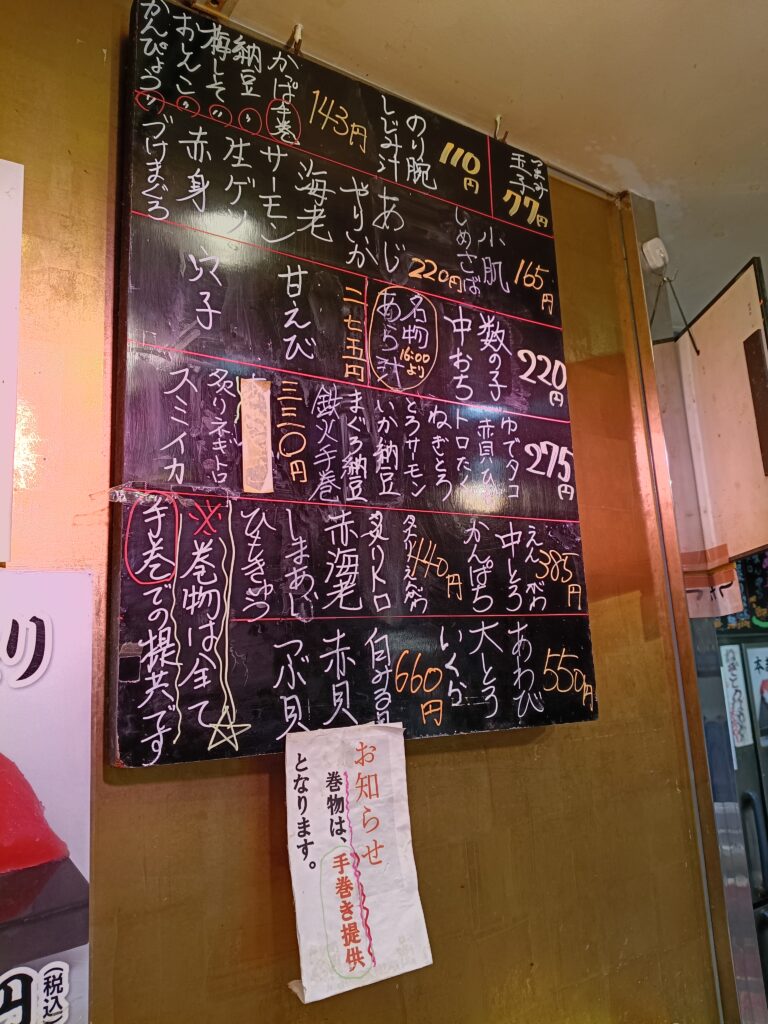 つまみ玉子
77円
のり腕
しじみ汁
110円
かっぱ手巻
納豆〃
梅しそ〃
おしんこ〃
かんぴょう〃
143円
小肌
しめさば
165円
あじ
やりいか
海老
サーモン
生ゲソ
赤身
づけまぐろ
220円
数の子
中おち
220円
名物
あら汁
16:00
より
甘えび
穴子
二七五円
ゆでタコ
赤貝ひも
トロたく
ねぎとろ
とろサーモン
いか納豆
まぐろ納豆
鉄火手巻
275円
三三〇円
炙りネギトロ
スミイカ
えんがわ
中とろ
かんぱち
385円
炙りえんがわ
炙りトロ
赤海老
しまあじ
440円
あわび
大とろ
いくら
550円
白みる貝
赤貝
ツブ貝
660円
※巻物は全て
手巻での提共です
お知らせ
巻物は、手巻き提供
となります。
り
円
(税込)